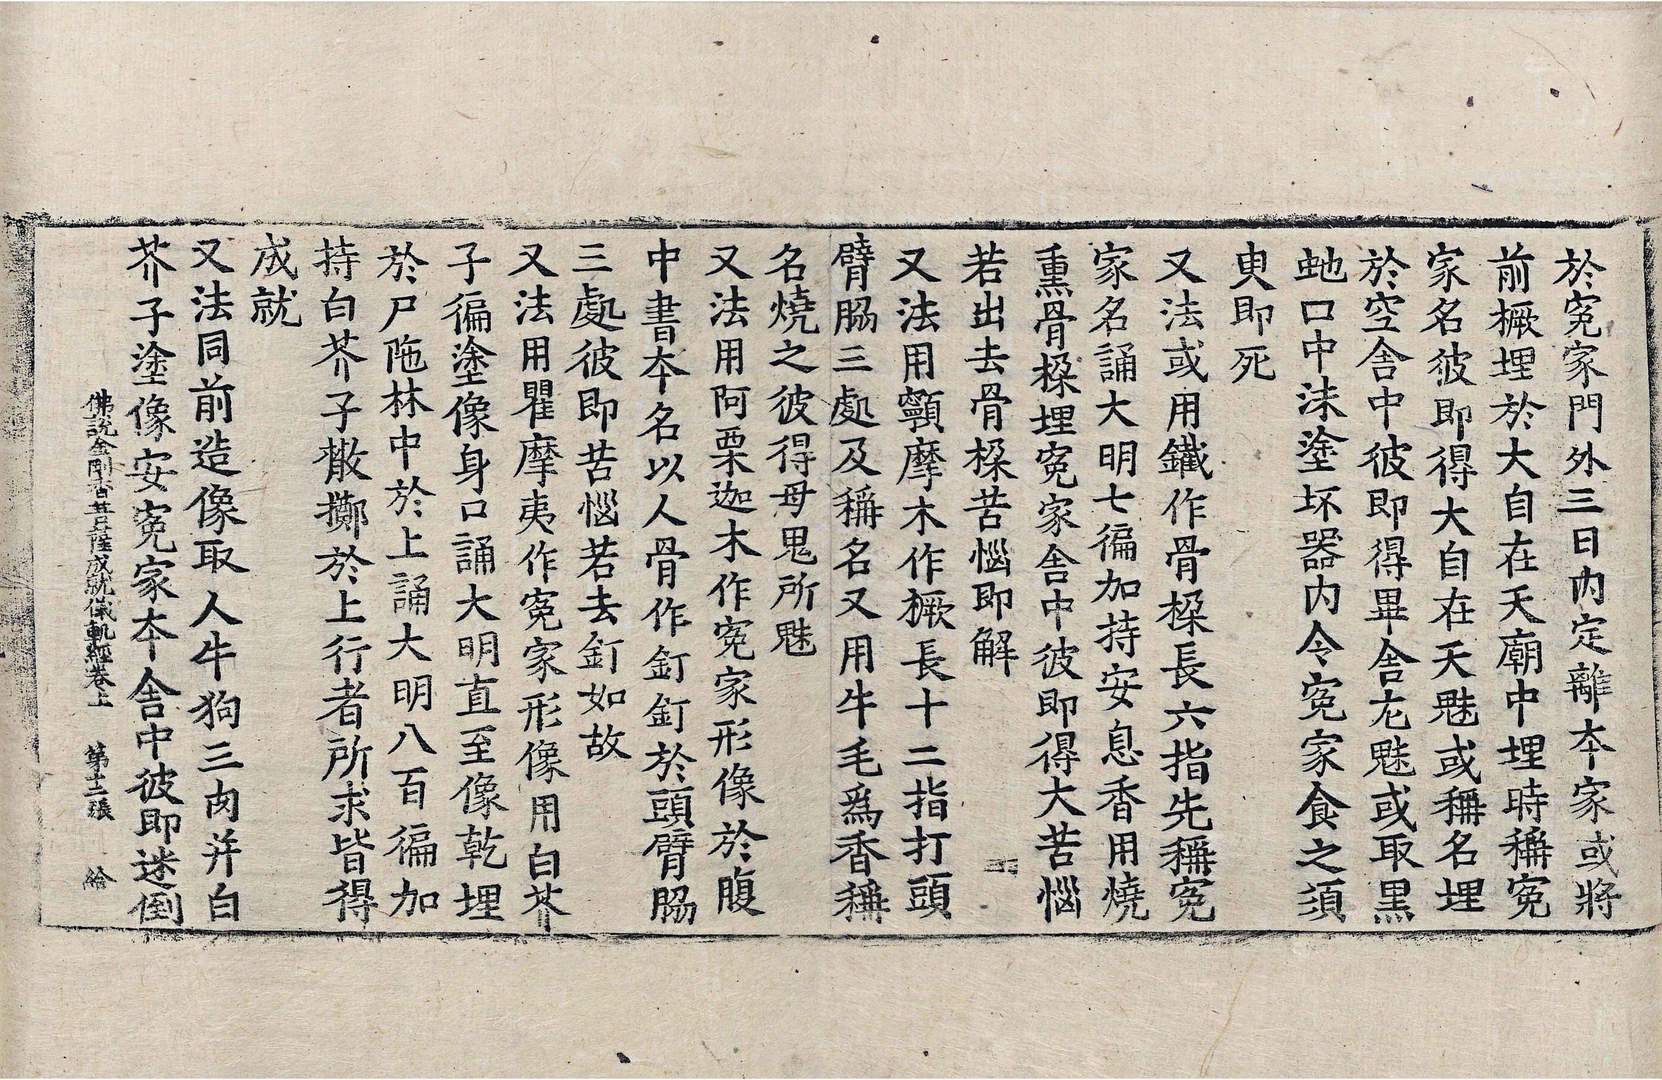 於寃家門外三日內定離本家或將
前橛埋於大自在天廟中埋時稱寃
家名彼即得大自在天魅或稱名埋
於空舍中彼即得畢舍左魅或取黑
虵口中沫塗坏器內令寃家食之須
臾即死
又法或用鐵作骨橾長六指先稱寃
家名誦大明七徧加持安息香用燒
熏骨橾埋寃家舍中彼即得大苦惱
若出去骨橾苦惱即解
又法用顰摩木作橛長十二指打頭
臂脇三處及稱名又用牛毛爲香稱
名燒之彼得母鬼所魅
又法用阿栗迦木作寃家形像於腹
中書本名以人骨作釘釘於頭臂脇
三處彼即苦惱若去釘如故
又法用瞿摩夷作寃家形像用白芥
子徧塗像身口誦大明直至像乾埋
於尸陁林中於上誦大明八百徧加
持白芥子撒擲於上行者所求皆得
成就
又法同前造像取人牛狗三肉并白
芥子塗像安寃家本舍中彼即迷倒
佛說金剛香菩薩成就儀軌經卷上 第十二張 給